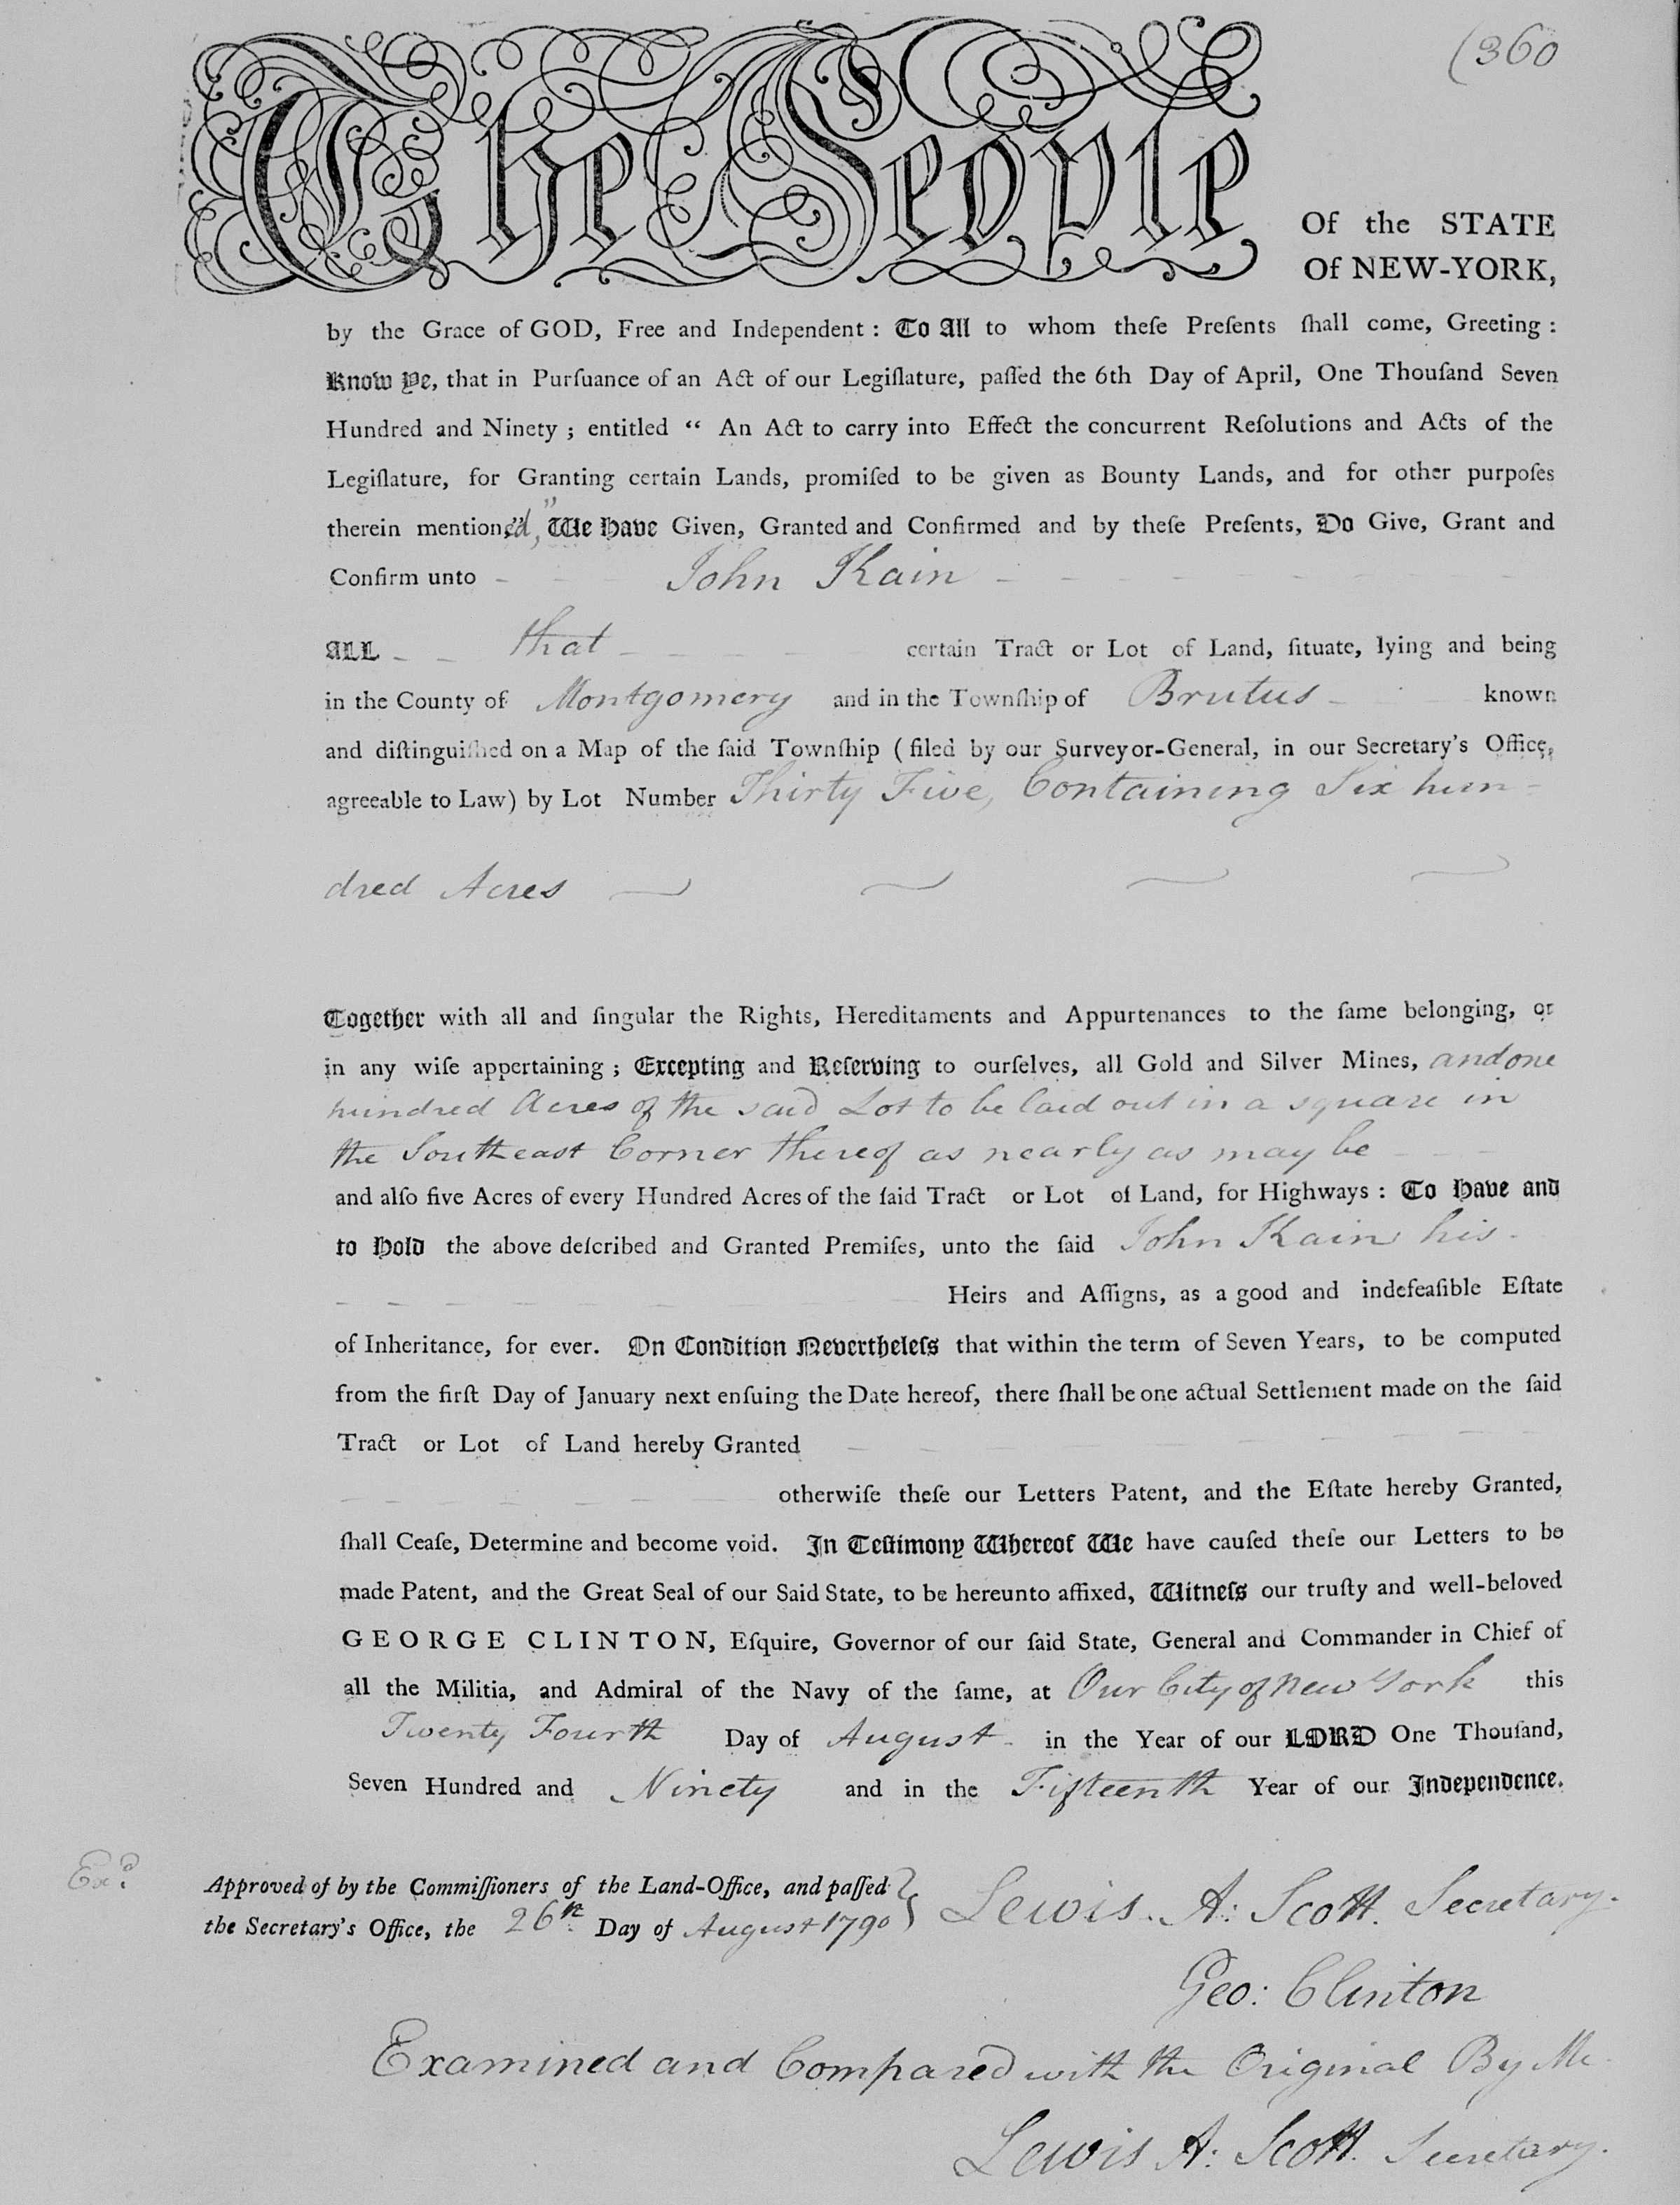 (360
The People
Of the STATE
Of NEW-YORK,
by the Grace of GOD, Free and Independent : To All to whom theſe Preſents ſhall come, Greeting :
Know Ye, that in Purſuance of an Act of our Legiſlature, paſſed the 6th Day of April, One Thouſand Seven
Hundred and Ninety ; entitled “ An Act to carry into Effect the concurrent Reſolutions and Acts of the
Legiſlature, for Granting certain Lands, promiſed to be given as Bounty Lands, and for other purpoſes
therein mentioned,” We Have Given, Granted and Confirmed and by theſe Preſents, Do Give, Grant and
Confirm unto - John Kain -
ALL - - that - certain Tract or Lot of Land, ſituate, lying and being
in the County of Montgomery and in the Townſhip of Brutus - known
and diſtinguiſhed on a Map of the ſaid Townſhip ( filed by our Surveyor-General, in our Secretary's Office,
agreeable to Law) by Lot Number Thirty Five, Containing Six hun=
dred Acres
Together with all and ſingular the Rights, Hereditaments and Appurtenances to the ſame belonging, or
in any wiſe appertaining ; Excepting and Reſerving to ourſelves, all Gold and Silver Mines, and one
hundred Acres of the said Lot to be laid out in a square in
the Southeast Corner thereof as nearly as may be
and alſo five Acres of every Hundred Acres of the ſaid Tract or Lot of Land, for Highways : To Have and
to Hold the above deſcribed and Granted Premiſes, unto the ſaid John Kain his -
Heirs and Aſſigns, as a good and indefeaſible Eſtate
of Inheritance, for ever. On Condition Nevertheleſs that within the term of Seven Years, to be computed
from the firſt Day of January next enſuing the Date hereof, there ſhall be one actual Settlement made on the ſaid
Tract or Lot of Land hereby Granted
otherwiſe theſe our Letters Patent, and the Eſtate hereby Granted,
ſhall Ceaſe, Determine and become void. In Teſtimony Whereof We have cauſed theſe our Letters to be
made Patent, and the Great Seal of our Said State, to be hereunto affixed, Witneſs our truſty and well-beloved
GEORGE CLINTON, Eſquire, Governor of our ſaid State, General and Commander in Chief of
all the Militia, and Admiral of the Navy of the ſame, at Our City of New York this
Twenty Fourth Day of August - in the Year of our LORD One Thouſand,
Seven Hundred and Ninety and in the Fifteenth Year of our Independence.
Exd.
Approved of by the Commiſſioners of the Land-Office, and paſſed
the Secretary's Office, the 26th Day of August 1790
Lewis. A: Scott. Secretary.
Geo: Clinton
Examined and Compared with the Original By Me
Lewis A: Scott. Secretary.